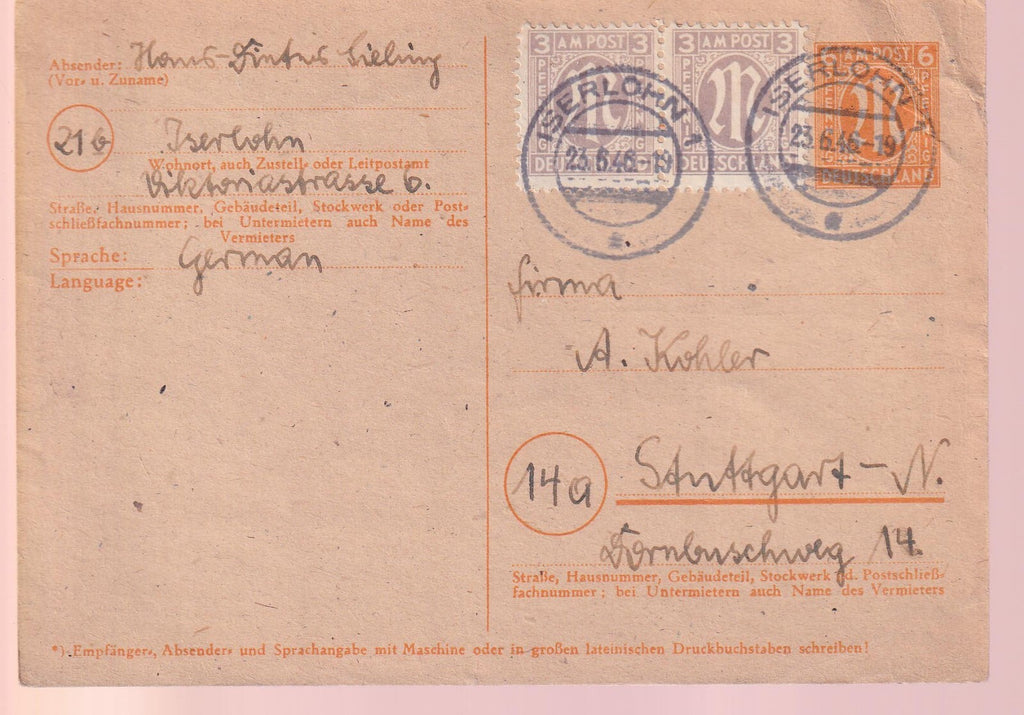 Absender: Hans-Dieter Sieling
(Vor- u. Zuname)
21b Iserlohn
Wohnort, auch Zustell- oder Leitpostamt
Viktoriastrasse 6.
Straße, Hausnummer, Gebäudeteil, Stockwerk oder Post-
schließfachnummer; bei Untermietern auch Name des
Vermieters
Sprache: German
Language:
3 AM POST 3
PFENNIG
DEUTSCHLAND
3 AM POST 3
PFENNIG
DEUTSCHLAND
AM POST 6
PFENNIG
DEUTSCHLAND
ISERLOHN 1
23.6.46.-19
ISERLOHN 1
23.6.46.-19
Firma
A. Kohler
14a Stuttgart-N.
Dornbuschweg 14.
Straße, Hausnummer, Gebäudeteil, Stockwerk od. Postschließ-
fachnummer; bei Untermietern auch Name des Vermieters
*) Empfänger-, Absender- und Sprachangabe mit Maschine oder in großen lateinischen Druckbuchstaben schreiben!